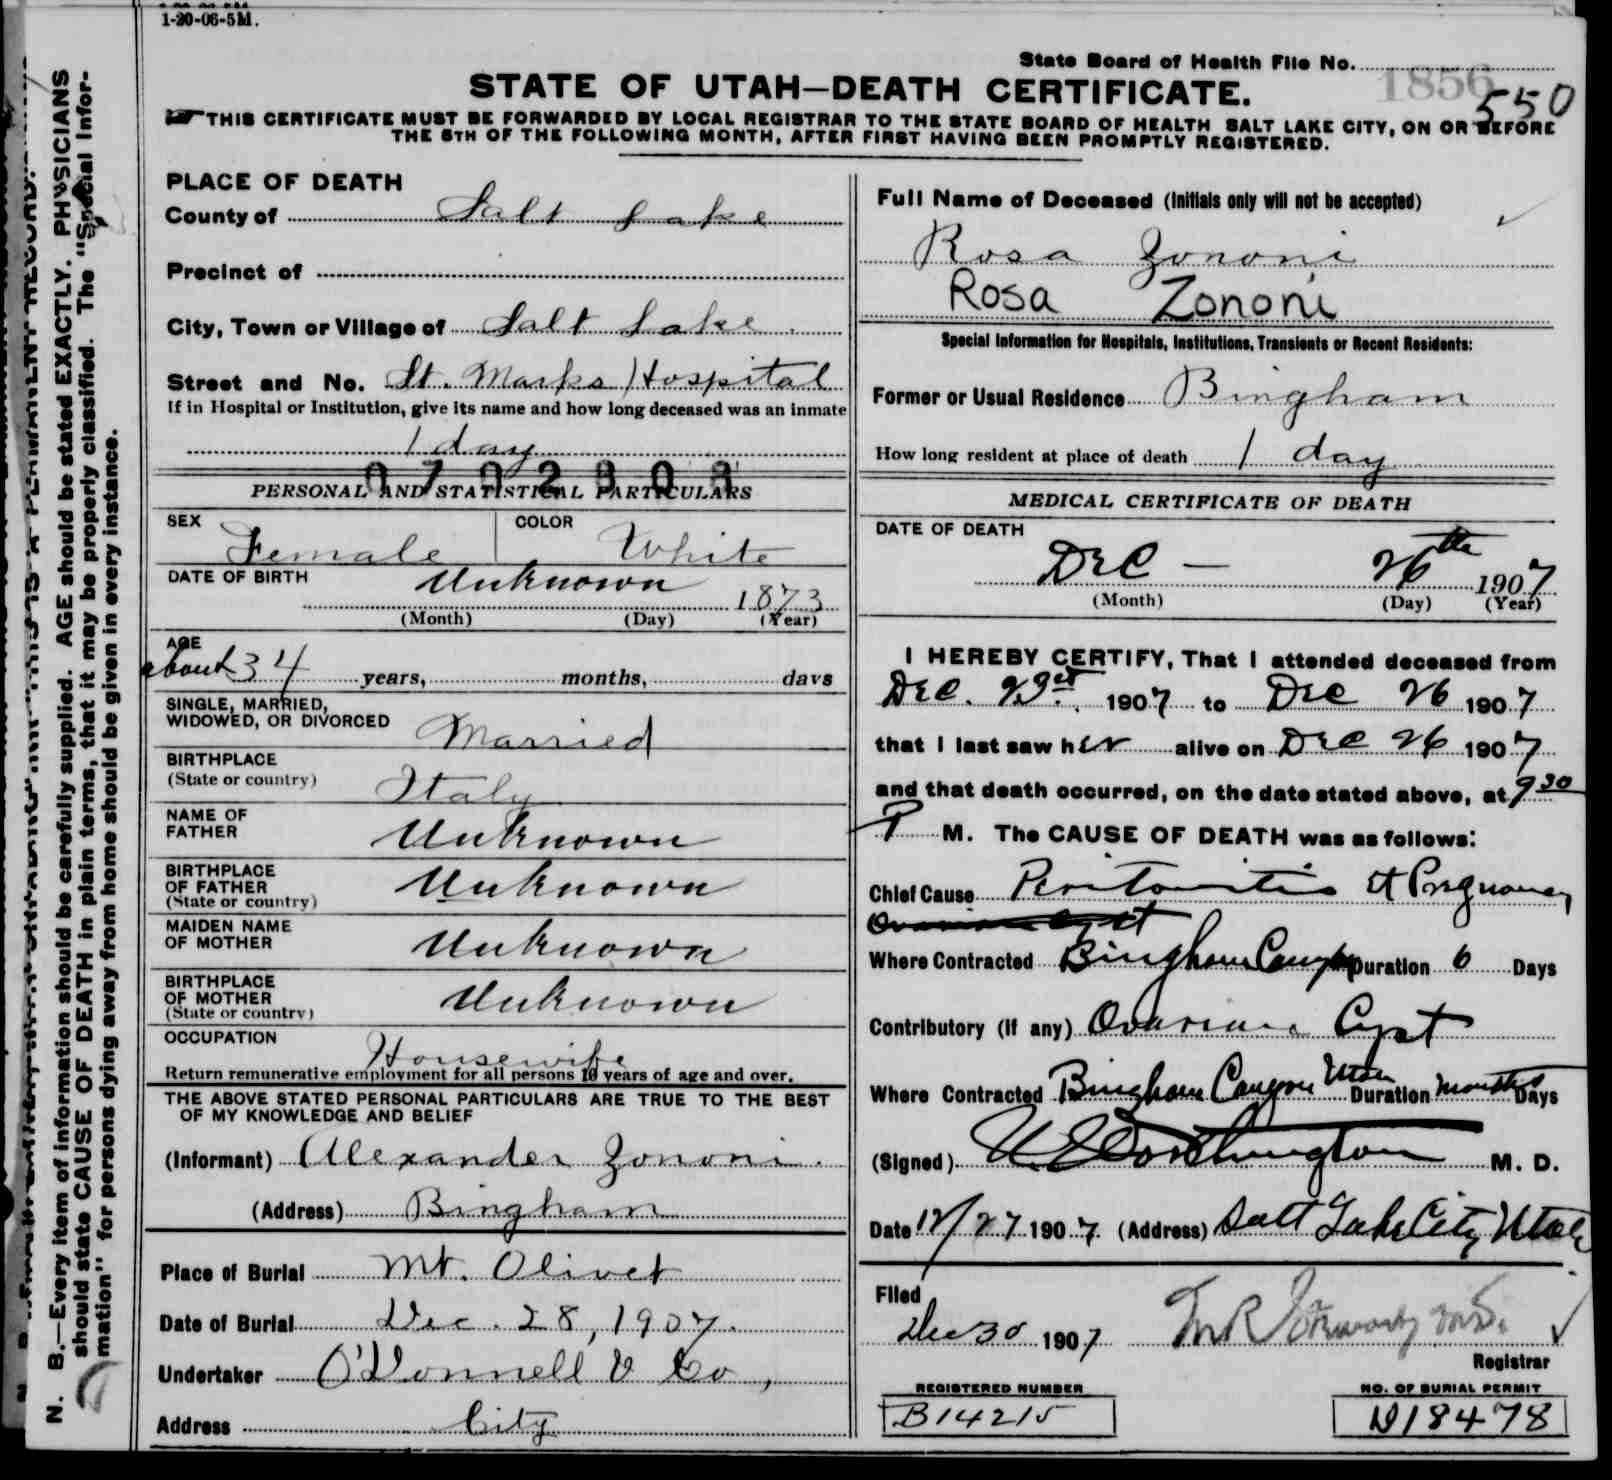 1-20-06-5M.
State Board of Health File No.
1856
550
STATE OF UTAH—DEATH CERTIFICATE.
THIS CERTIFICATE MUST BE FORWARDED BY LOCAL REGISTRAR TO THE STATE BOARD OF HEALTH SALT LAKE CITY, ON OR BEFORE
THE 5TH OF THE FOLLOWING MONTH, AFTER FIRST HAVING BEEN PROMPTLY REGISTERED.
N. B.—Every item of information should be carefully supplied. AGE should be stated EXACTLY. PHYSICIANS
should state CAUSE OF DEATH in plain terms, that it may be properly classified. The "Special Infor-
mation" for persons dying away from home should be given in every instance.
PLACE OF DEATH
County of Salt Lake
Precinct of
City, Town or Village of Salt Lake.
Street and No. St. Marks Hospital
If in Hospital or Institution, give its name and how long deceased was an inmate
1 day
PERSONAL AND STATISTICAL PARTICULARS
SEX Female COLOR White
DATE OF BIRTH Unknown 1873
(Month) (Day) (Year)
AGE
about 34 years, months, days
SINGLE, MARRIED,
WIDOWED, OR DIVORCED Married
BIRTHPLACE
(State or country) Italy
NAME OF
FATHER Unknown
BIRTHPLACE
OF FATHER Unknown
(State or country)
MAIDEN NAME
OF MOTHER Unknown
BIRTHPLACE
OF MOTHER Unknown
(State or country)
OCCUPATION Housewife
Return remunerative employment for all persons 10 years of age and over.
THE ABOVE STATED PERSONAL PARTICULARS ARE TRUE TO THE BEST
OF MY KNOWLEDGE AND BELIEF
(Informant) Alexander Zononi.
(Address) Bingham
Place of Burial Mt. Olivet
Date of Burial Dec. 28, 1907.
Undertaker O'Donnell & Co,
Address City
Full Name of Deceased (Initials only will not be accepted)
Rosa Zononi
Rosa Zononi
Special Information for Hospitals, Institutions, Transients or Recent Residents:
Former or Usual Residence Bingham
How long resident at place of death 1 day
MEDICAL CERTIFICATE OF DEATH
DATE OF DEATH
Dec — 26th 1907
(Month) (Day) (Year)
I HEREBY CERTIFY, That I attended deceased from
Dec. 23rd, 1907 to Dec 26 1907
that I last saw her alive on Dec 26 1907
and that death occurred, on the date stated above, at 9 30
P M. The CAUSE OF DEATH was as follows:
Chief Cause Peritonitis et Pregnancy
Ovarian Cyst
Where Contracted Bingham Canyon Duration 6 Days
Contributory (If any) Ovarian Cyst
Where Contracted Bingham Canyon Utah Duration Months Days
(Signed) Worthington M. D.
Date 12/27 1907. (Address) Salt Lake City Utah
Filed
Dec 30 1907
Registrar
REGISTERED NUMBER
B14215
NO. OF BURIAL PERMIT
D18478